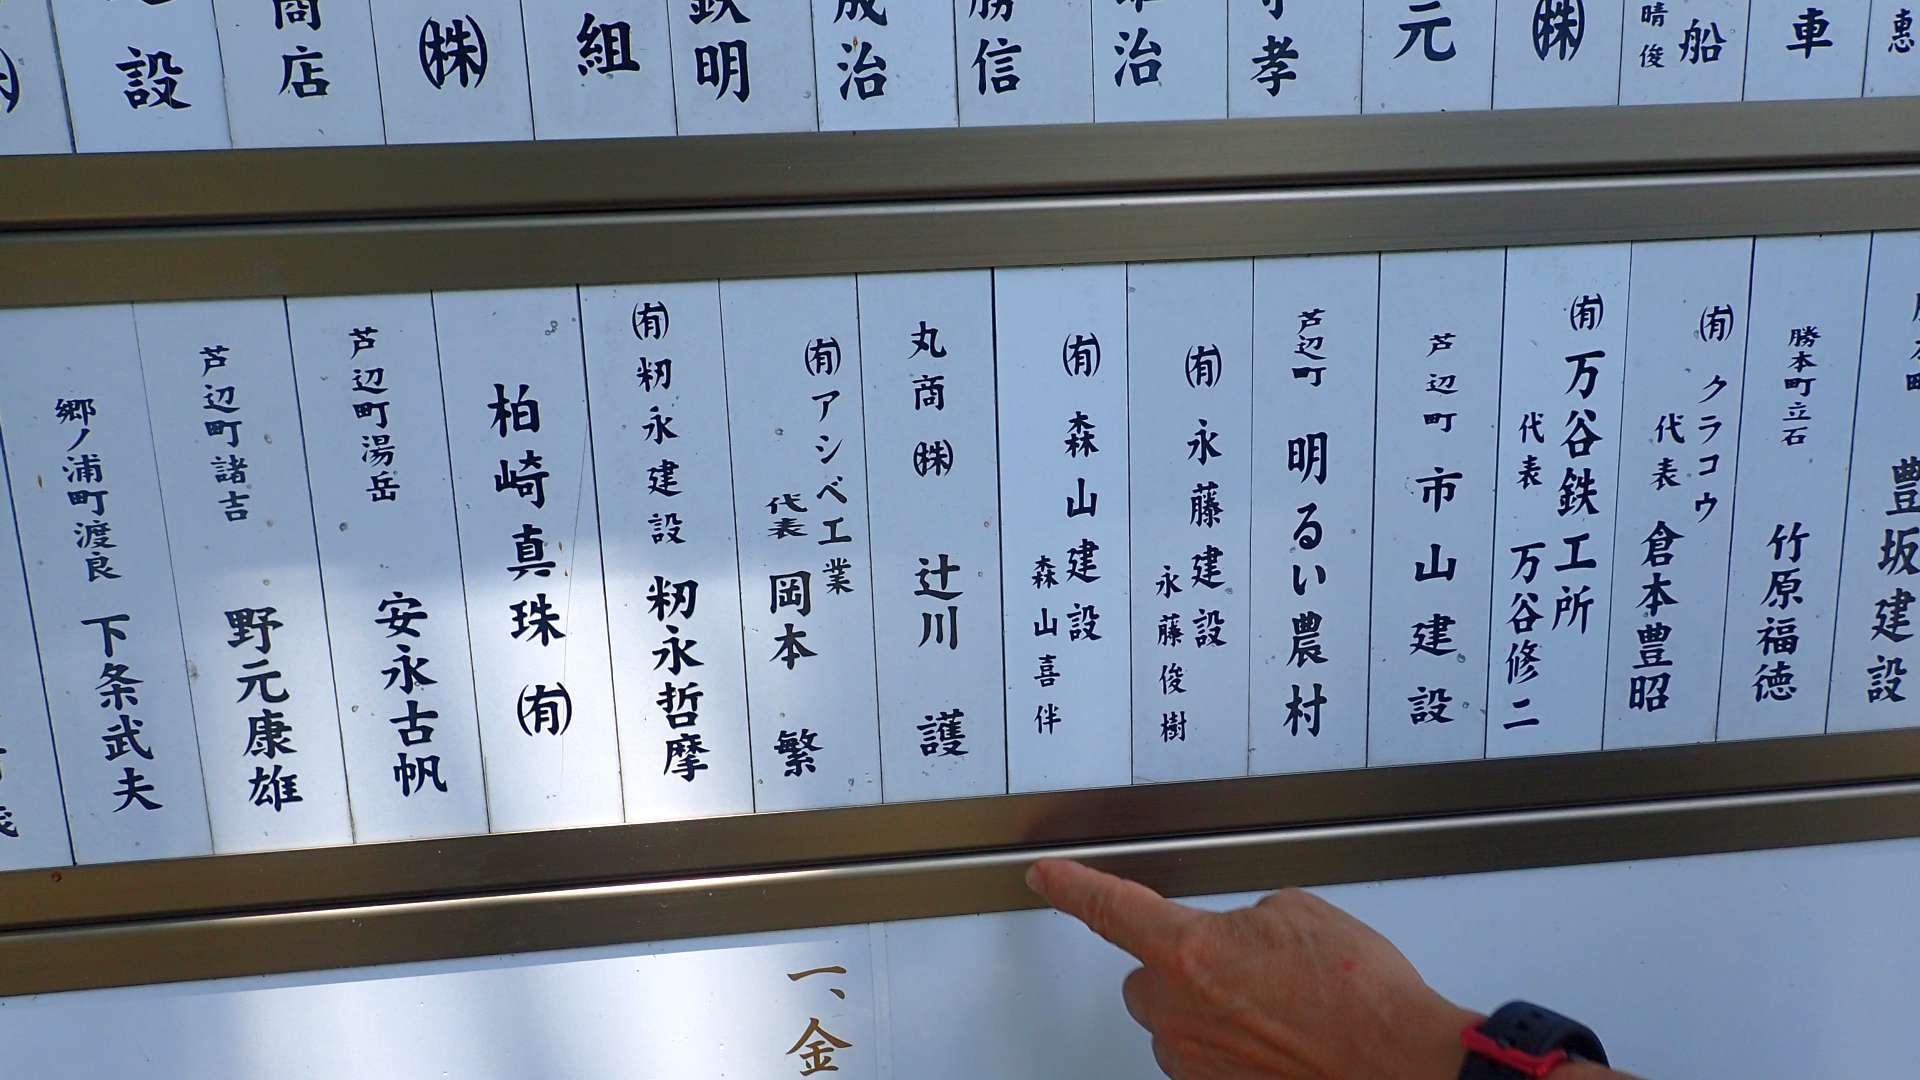 惠
車
船
晴俊
㈱
元
孝
治
勝信
成治
鉄明
組
㈱
商店
設
豊坂建設
勝本町立石 竹原福徳
㈲クラコウ
代表 倉本豊昭
㈲万谷鉄工所
代表 万谷修二
芦辺町 市山建設
芦辺町 明るい農村
㈲永藤建設
永藤俊樹
㈲森山建設
森山喜伴
丸商㈱ 辻川 護
㈲アシベ工業
代表 岡本 繁
㈲籾永建設 籾永哲摩
柏崎真珠㈲
芦辺町湯岳 安永古帆
芦辺町諸吉 野元康雄
郷ノ浦町渡良 下条武夫
一、金